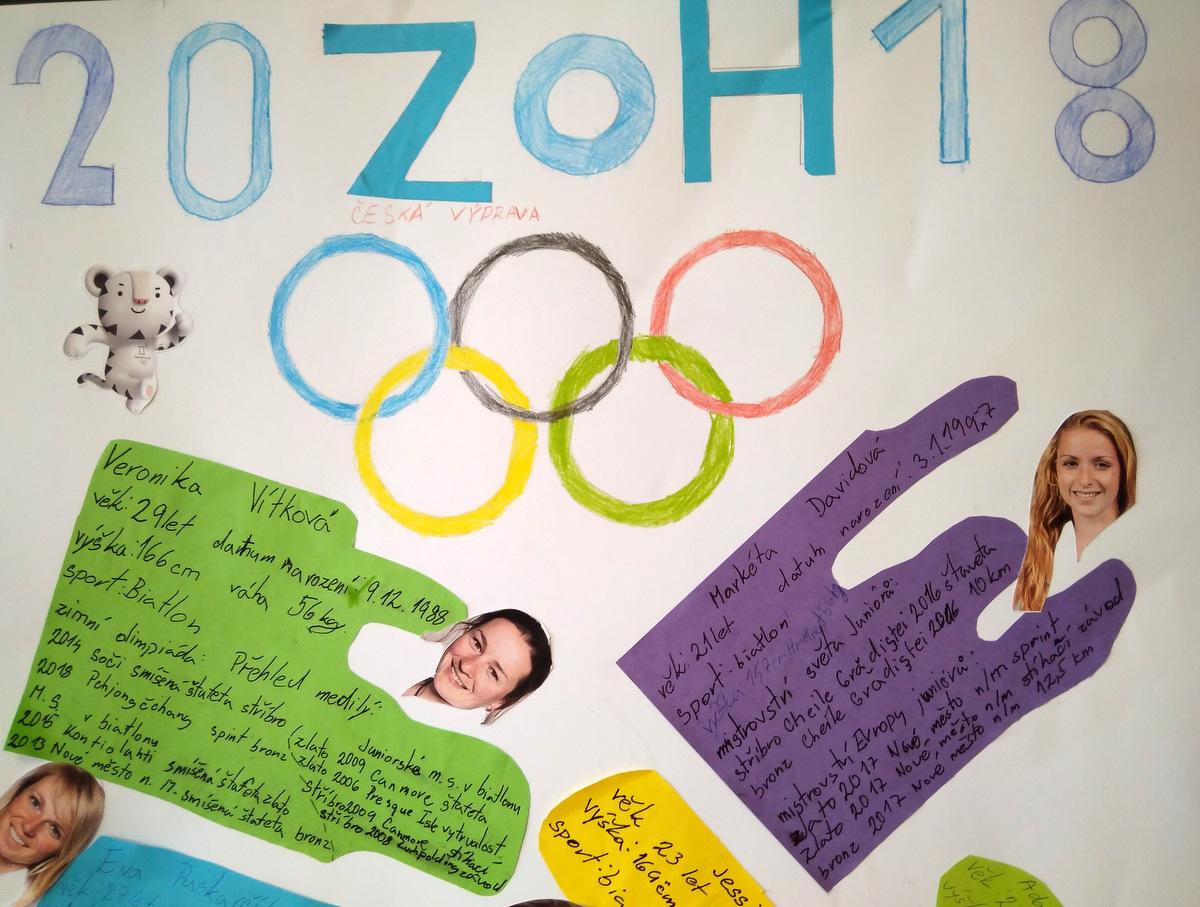 20 ZOH 18
ČESKÁ VÝPRAVA
Veronika Vítková
věk: 29 let datum narození: 9.12. 1988
výška: 166 cm váha 56 kg.
sport: Biatlon
zimní olimpiáda: Přehled medilý:
2014 Soči smíšená štafeta stříbro
2018 Pchjongčchang sprint bronz
M.S. v biatlonu
2015 Kontiolahti smíšená štafeta zlato
2013 Nové město n. M. smíšená štafeta bronz
Juniorské m.s. v biatlonu
zlato 2009 Canmore štafeta
zlato 2006 Presque Isle vytrvalost
stříbro 2009 Canmore stíhací
stříbro 2008 Ruhpolding závod
Markéta Davidová
věk: 21 let datum narození: 3.1.1997
sport: biatlon
výška 157cm
mistrovství světa Juniorů:
stříbro Cheile Grádištei 2016 štaveta
bronz Cheile Gradištei 2016 10 km
mistrovství Evropy juniorů:
zlato 2017 Nové město n/m sprint
zlato 2017 Nové město n/m stíhací závod
bronz 2017 Nové město n/m 12,5 km
Eva Pusk
věk: 27 let
Jess
věk 23 let
výška: 164 cm
sport: bia
Ad
věk 2
výš